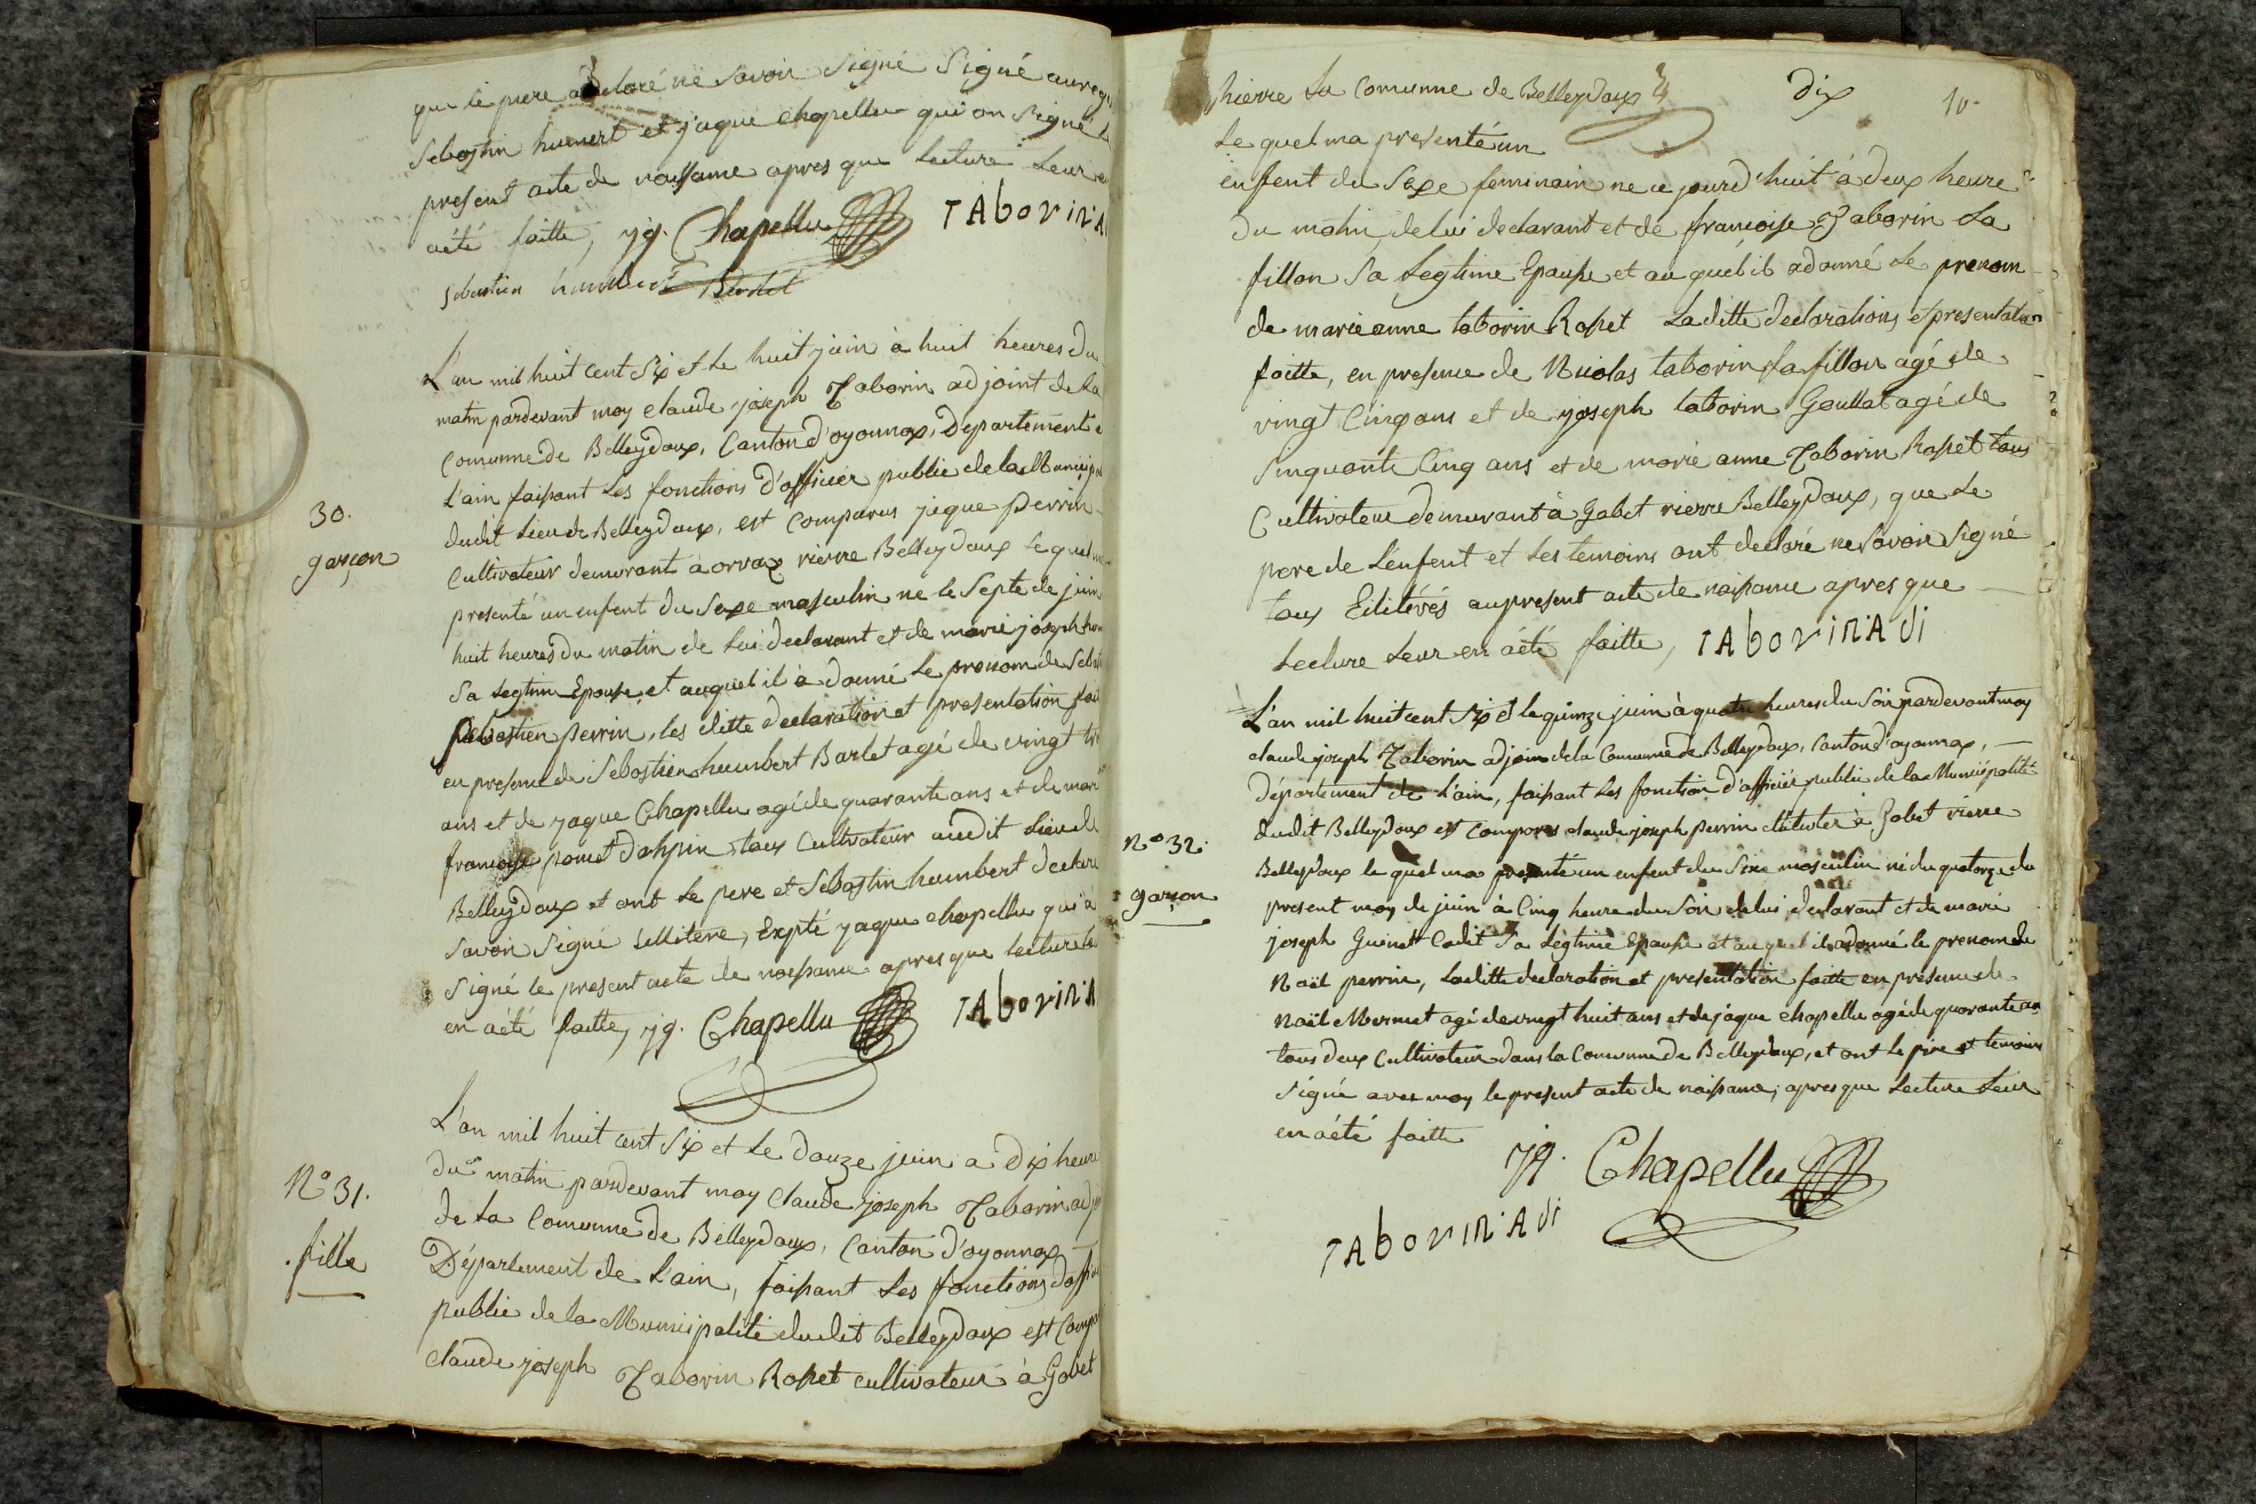 que le pere a declaré ne savoir signé Signé au reg
Sebastin humert et jaque chapellu qui on signé
present acte de naissance apres que Lecture Leur
aété faitte, jq. Chapellu TAborinA
sebastien humbert Barlet
L'an mil huit cent Six et Le huit juin à huit heures du
matin pardevant moy claude joseph Taborin adjoint de La
Comunne de Belleydoux, Canton d'oyonnax, Departement
L'ain faisant Les fonctions d'officiér public de la Municip
dudit Lieu de Belleydoux, est Comparus jaque perrin
Cultivateur demurant à orvaz rierre Belleydoux Le quel
30.
garçon
presenté un enfent du Sexe masculin ne le Septe de juin
huit heures du matin de Lui declarant et de marie joseph
Sa Legtim Epouse et auquel il à donné Le prenom de
sebastien perrin, les ditte declaration et presentation
en presence de Sebastien humbert Barlet agé de vingt
ans et de jaque Chapellu agé de quarante ans et de
francoise pouet Dalspin tous Cultivateur audit Lieu de
Belleydoux et ont Le pere et Sebastin humbert
Savoir Signé, Expté jaque chapellu qui à
Signé le present acte de naissance apres que Lecture
en aété faitte, jq. Chapellu TAborinA
L'an mil huit cent Six et Le douze juin a Dix heure
du matin pardevant moy Claude joseph Taborin
de La Comunne de Belleydoux, Canton d'oyonnax
N° 31.
fille
Département de L'ain, faisant Les fonctions
public de la Municipalité dudit Belleydoux est
claude joseph Taborin Rosset cultivateur à Gobet
rierre La Comunne de Belleydoux
dix 10.
Le quel ma presenté un
enfent du Sexe feminain ne ce jourd'huit à deux heure
du matin de lui declarant et de francoise Taborin La
fillon Sa Legtime Epause et au quel il adonné Le prenom
de marie anne taborin Rosset Laditte declarations et presentation
faitte, en presence de Nicolas taborin La fillon agé de
vingt Cinq ans et de joseph taborin Goullat agé de
Sinquante Cinq ans et de marie anne Taborin Rosset tous
Cultivateur demurant à Gobet rierre Belleydoux, que Le
pere de L'enfent et Les temoins ont declaré ne Savoir Signé
tous au present acte de naissance apres que
Lecture Leur en aété faitte, TAborinAdi
L'an mil huit cent Six et le quinze juin à quatre heures du Soir pardevant moy
claude joseph Taborin adjoin de la Comunne de Belleydoux, Canton d'oyonnax,
Département de L'ain, faisant Les fonction d'officiér public de la Municipalité
dudit Belleydoux est Comparus claude joseph perrin à Gobet rierre
N° 32.
garçon
Belleydoux le quel ma presenté un enfent du Sexe masculin né du quatorze du
present moy de juin à Cinq heure du Soir de lui declarant et de marie
joseph Guinet Cadit Sa Legtime Epause et au quel il adonné le prenom de
Naël perrin, Laditte declaration et presentation faitte en presence de
Naël Mermet agé de vingt huit ans et de jaque chapellu agé de quarante an
tous deux Cultivateur dans la Comunne de Belleydoux, et ont Le pere et temoins
Signé avec moy le present acte de naissance, apres que Lecture Leur
en aété faitte
jq. Chapellu
TAborinAdi